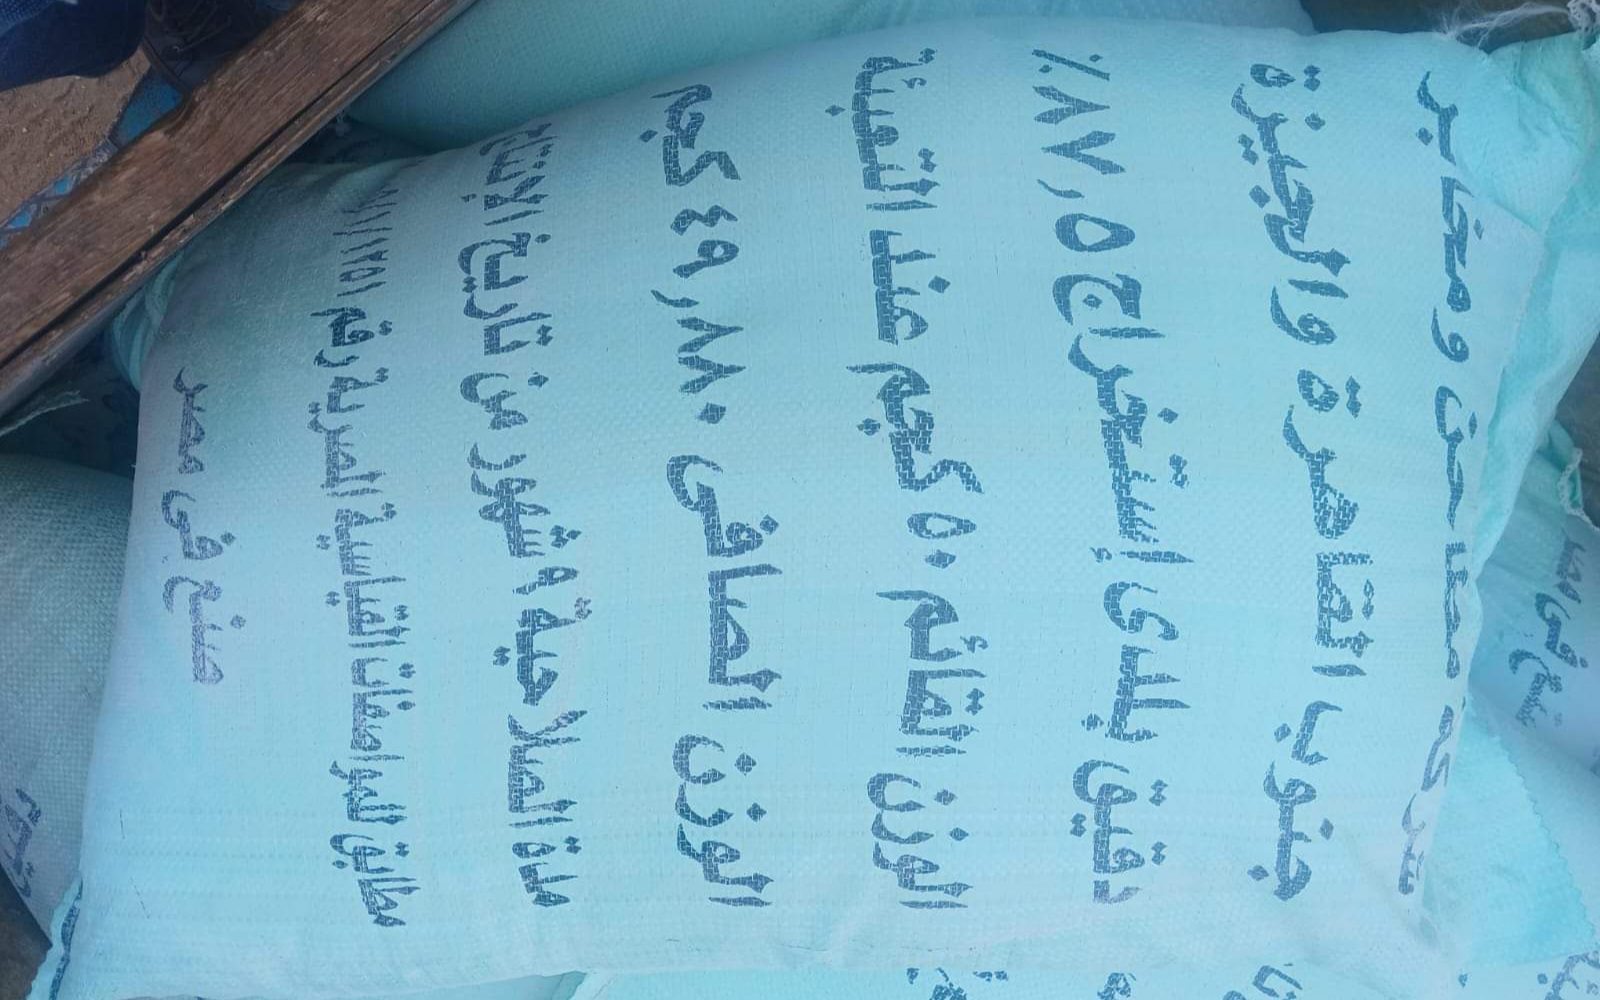 شركة مطاحن ومخابز
جنوب القاهرة والجيزة
دقيق بلدى إستخراج ٨٧,٥٪
الوزن القائم ٥٠ كجم عند التعبئة
الوزن الصافى ٤٩,٨٨٠ كجم
مدة الصلاحية ٩ شهور من تاريخ الإنتاج
مطابق للمواصفات القياسية المصرية رقم
صنع فى مصر